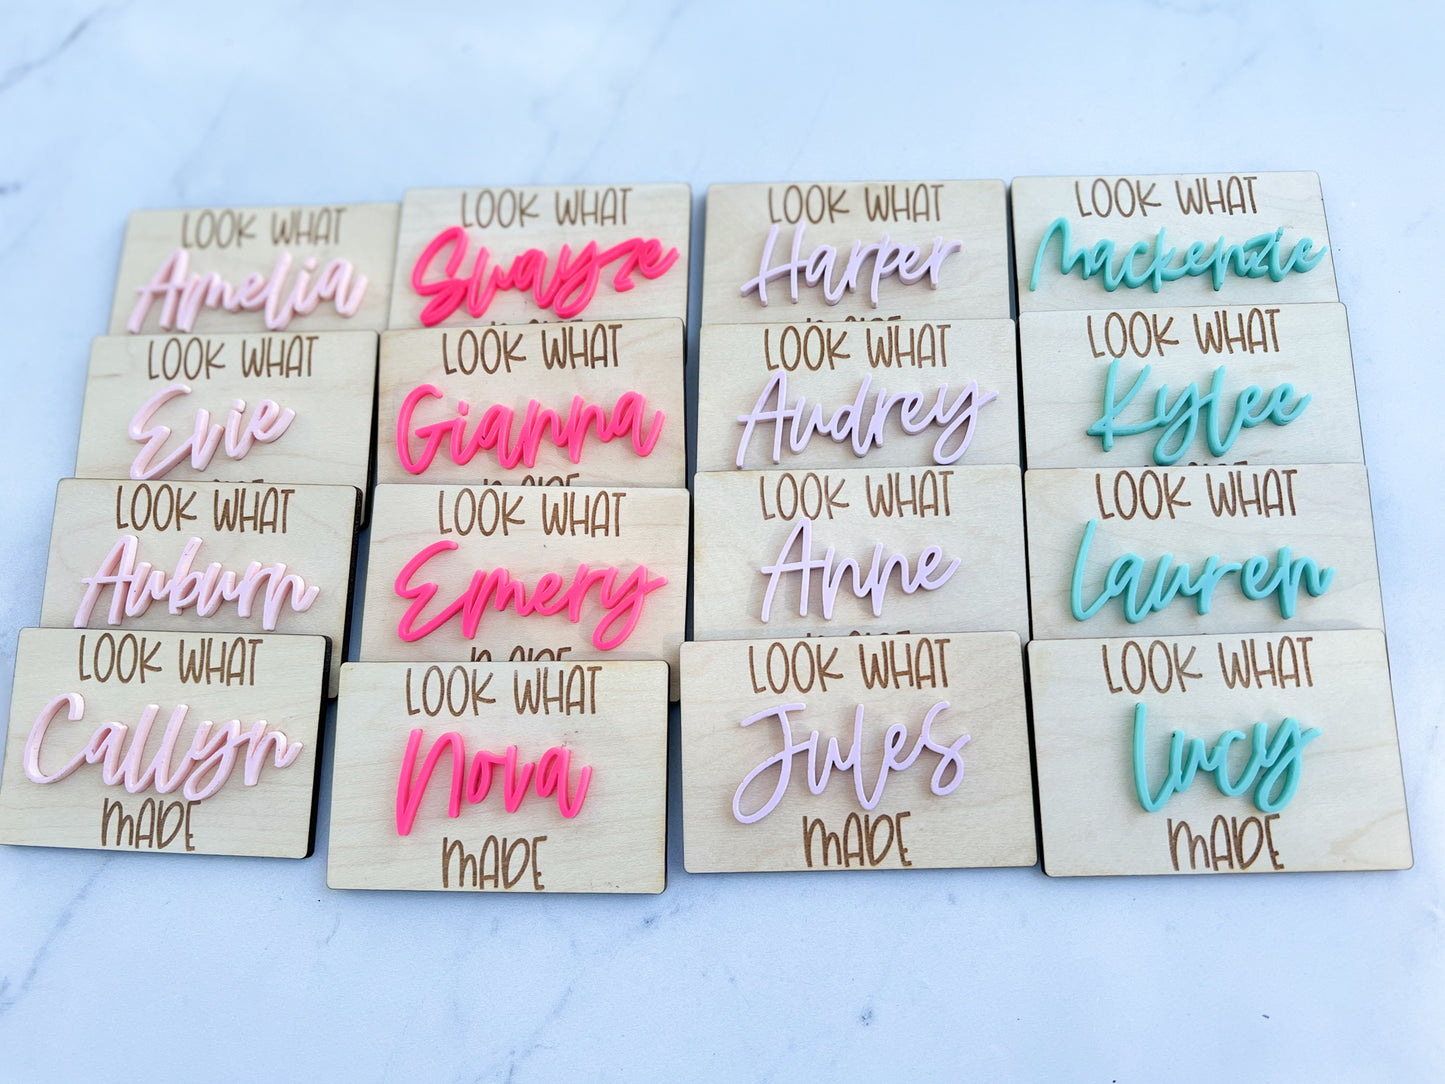 LOOK WHAT
Amelia
LOOK WHAT
Evie
LOOK WHAT
Auburn
LOOK WHAT
Callyn
MADE
LOOK WHAT
Swayze
LOOK WHAT
Gianna
MADE
LOOK WHAT
Emery
MADE
LOOK WHAT
Nova
MADE
LOOK WHAT
Harper
MADE
LOOK WHAT
Audrey
LOOK WHAT
Anne
MADE
LOOK WHAT
Jules
MADE
LOOK WHAT
Mackenzie
LOOK WHAT
Kylee
LOOK WHAT
Lauren
LOOK WHAT
Lucy
MADE